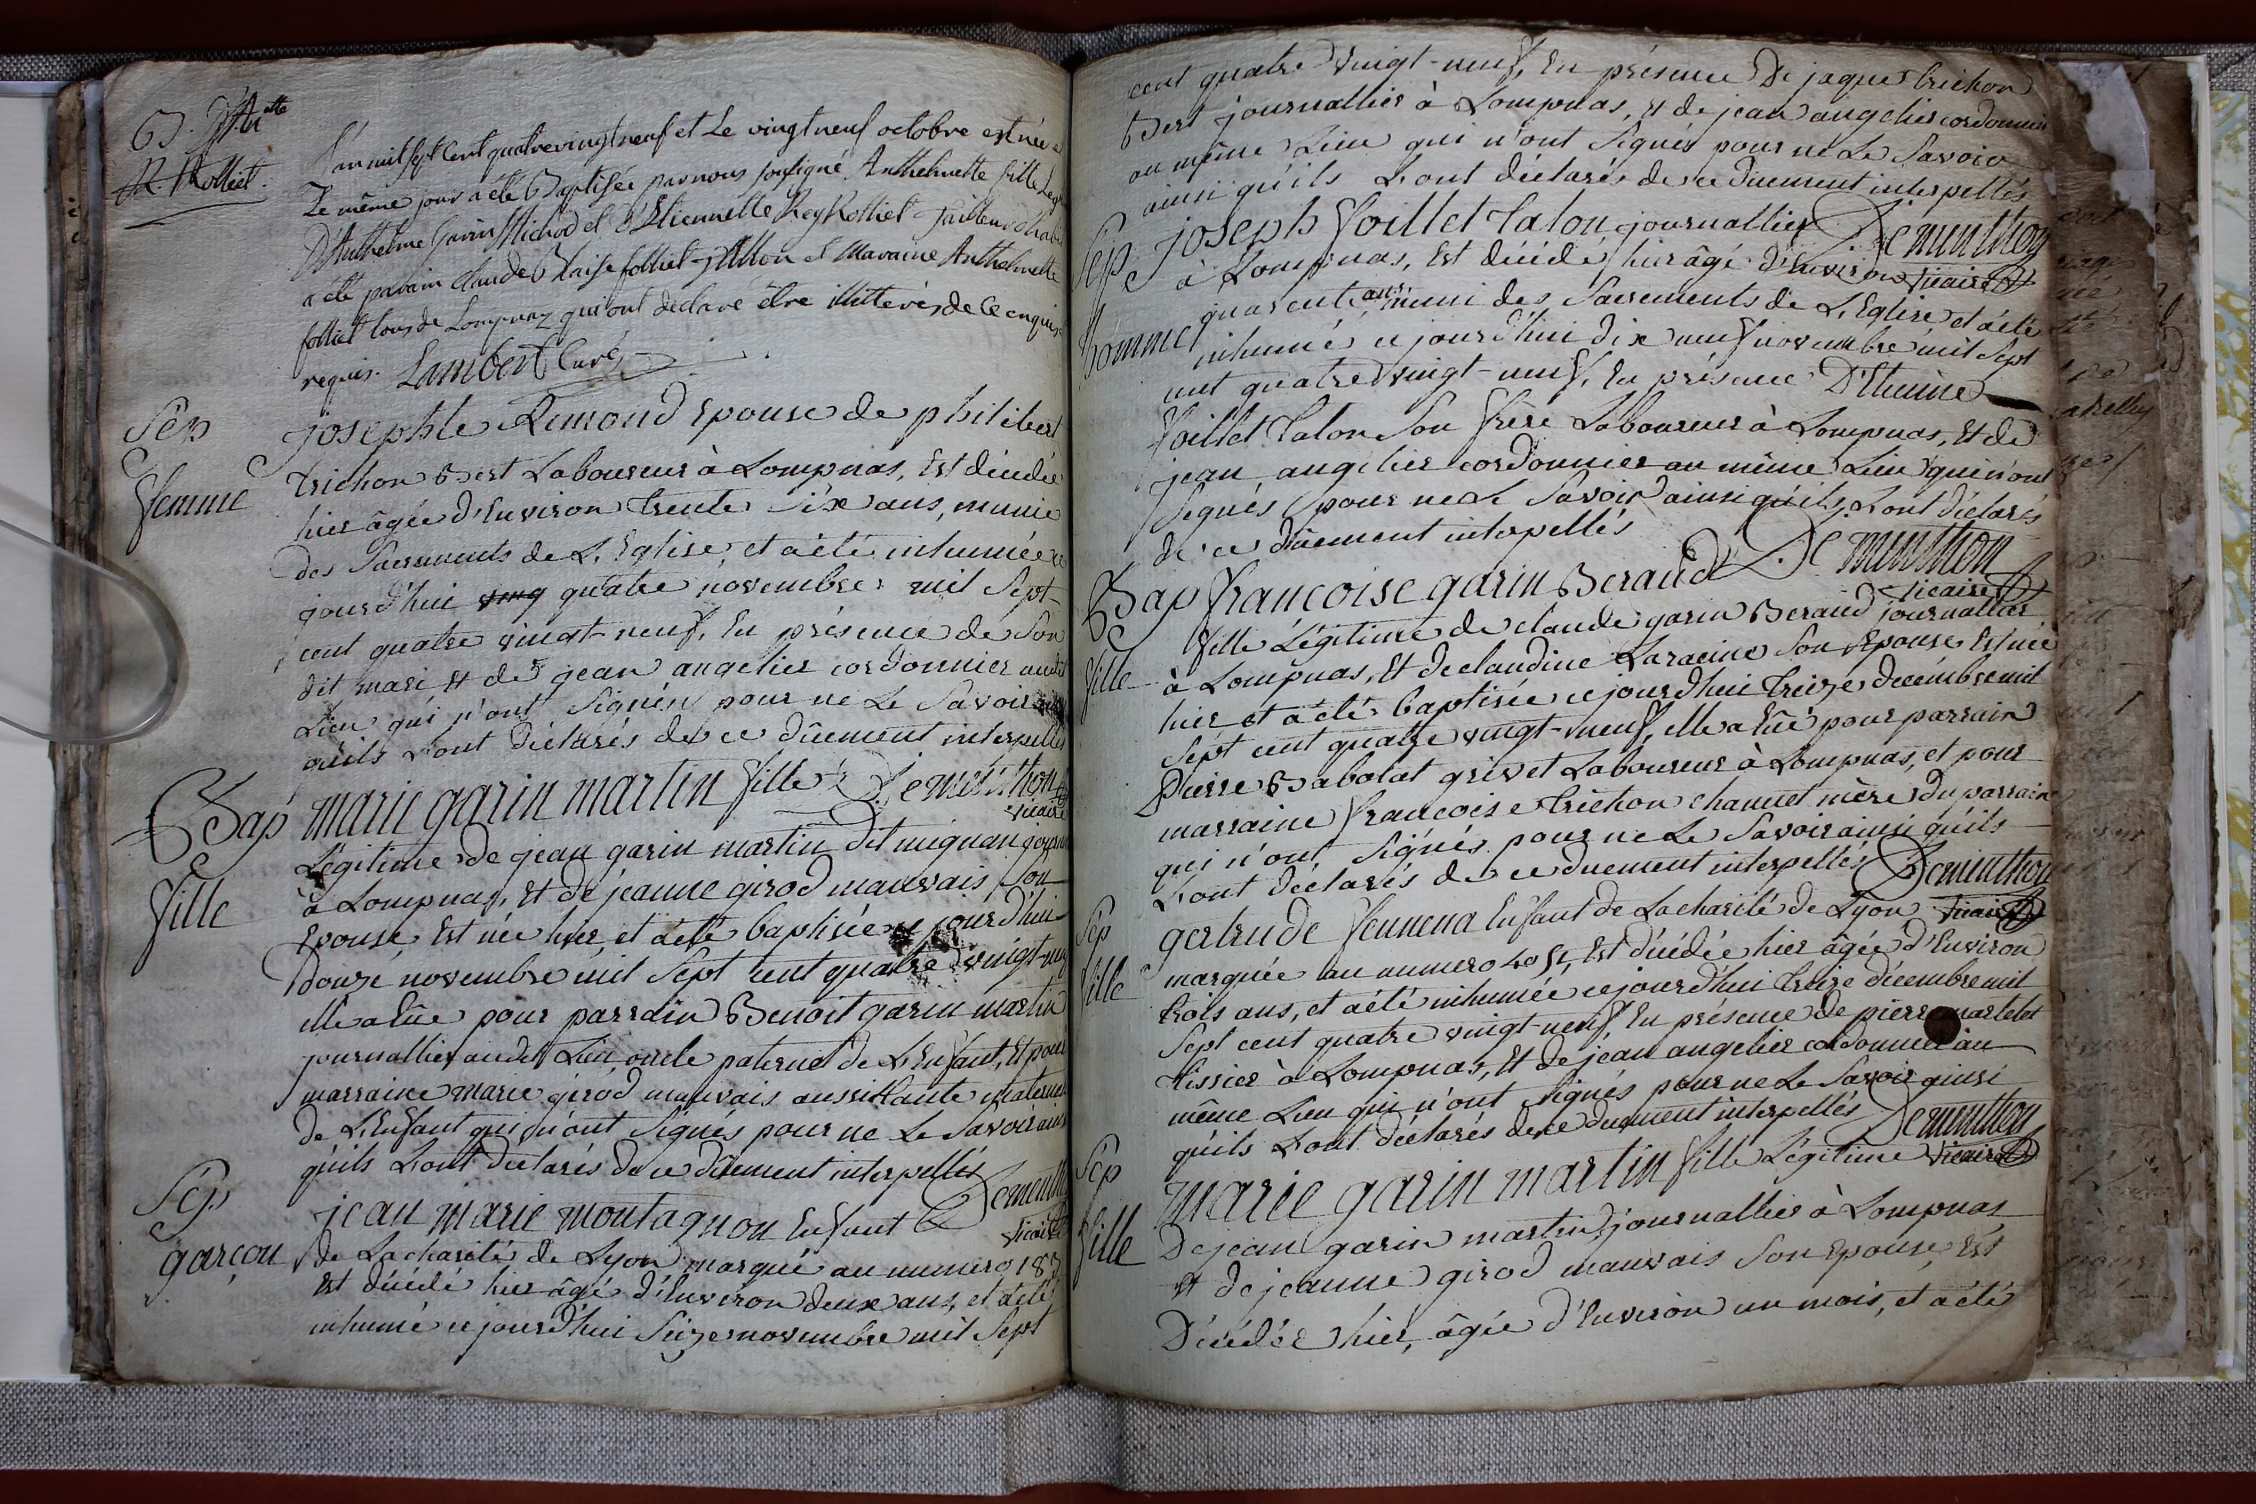 B. Anth.tte
R. Rolliet.
L'an mil sept Cent quatre vingt neuf et Le vingt neuf octobre est née et
Le même jour a été Baptisée par nous soussigné Anthelmette fille Leg
D'Anthelme Garin Michod et d'Etiennette Rey Rolliet Tailleur
a été parain Claude Blaise folliet et Maraine Anthelmette
folliet tous de Lompnaz qui ont declaré être illitterés de ce enquis
requis. Lambert Curé
Sep
femme
josephte Rimond Epouse de philibert
trichon Bert Laboureur à Lompnas, Est décédée
hier âgée d'Environ trente six ans, munie
des Sacrements de L'Eglise et a été inhumée ce
jourd'hui quatre novembre mil Sept
cent quatre vingt-neuf, En présence de Son
dit mari et de jean angelier cordonnier audit
Lieu qui n'ont Signés pour ne Le Savoir
quils L'ont déclarés de ce dûement interpellés
Dementhon
vicaire
Bap
fille
marie garin martin fille
Légitime de jean garin martin dit mignan
à Lompnas, Et de jeanne girod mauvais Son
Epouse, Est née hier, et a été baptisée ce jourd'hui
Douze novembre mil Sept cent quatre vingt-neuf
elle a Eûe pour parrain Benoit garin martin
journallier audit Lieu, oncle paternel de L'Enfant, Et pour
marraine marie girod mauvais aussi tante maternelle
de L'Enfant qui n'ont Signés pour ne Le Savoir ainsi
quils L'ont déclarés de ce dûement interpellés
Dementhon
vicaire
Sep
garçon
jean marie montagnon Enfant
de La charité de Lyon marqué au numero 187
Est décédé hier âgé d'Environ deux ans, et a été
inhumé ce jourd'hui Seize novembre mil Sept
cent quatre vingt-neuf, En présence De jaques trichon
Bert journallier à Lompnas, et de jean angelier cordonnier
au même Lieu qui n'ont Signés pour ne Le Savoir
ainsi qu'ils L'ont déclarés de ce duement interpellés
Dementhon
vicaire
Sep
homme
joseph foillet talon journallier
à Lompnas, Est décédé hier âgé d'Environ
quarente ans, muni des Sacrements de L'Eglise et a été
inhumé ce jourd'hui dix neuf novembre mil Sept
cent quatre vingt-neuf, En présence D'Etienne
foillet talon Son frère Laboureur à Lompnas, Et de
jean angelier cordonnier au même Lieu qui n'ont
Signés pour ne Le Savoir ainsi qu'ils L'ont déclarés
de ce dûement interpellés
Dementhon
vicaire
Bap
fille
françoise garin Beraud
fille Légitime de claude garin Beraud journallier
à Lompnas, Et de claudine Laracine Son Epouse Est née
hier et a été baptisée ce jourd'hui treize decembre mil
Sept cent quatre vingt-neuf, elle a Eûe pour parrain
Pierre Babolat grivet Laboureur à Lompnas, et pour
marraine françoise trichon chanuet mère du parrain
qui n'ont Signés pour ne Le Savoir ainsi qu'ils
L'ont déclarés de ce duement interpellés
Dementhon
vicaire
Sep
fille
gertrude Enfant de La charité de Lyon
marquée au numero Est décédée hier âgée d'Environ
trois ans, et a été inhumée ce jourd'hui treize décembre mil
Sept cent quatre vingt-neuf, En présence de pierre martelet
tissier à Lompnas, Et de jean angelier cordonnier au
même Lieu qui n'ont signés pour ne Le Savoir ainsi
qu'ils L'ont déclarés de ce duement interpellés
Dementhon
vicaire
Sep
fille
marie garin martin fille Légitime
De jean garin martin journallier à Lompnas
et de jeanne girod mauvais Son Epouse, Est
Décédée hier, âgée d'Environ un mois, et a été